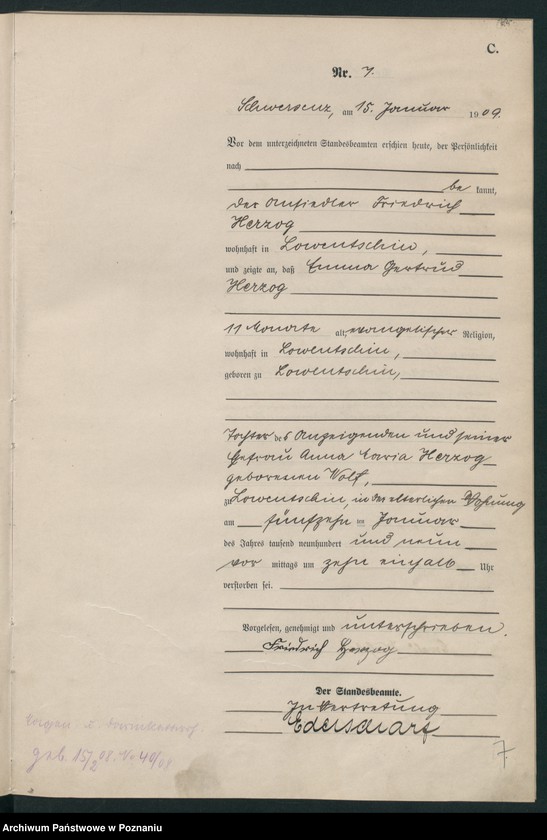 C.
Nr. 7.
Schwersenz, am 15. Januar 1909.
Vor dem unterzeichneten Standesbeamten erschien heute, der Persönlichkeit
nach
be kannt,
der Ansiedler Friedrich
Herzog
wohnhaft in Lowentschin,
und zeigte an, daß Emma Gertrud
Herzog
11 Monate alt, evangelischer Religion,
wohnhaft in Lowentschin,
geboren zu Lowentschin,
Tochter des Anzeigenden und seiner
Ehefrau Anna Maria Herzog
geborenen Wolf,
zu Lowentschin, in der elterlichen Wohnung
am fünfzehn ten Januar
des Jahres tausend neunhundert und neun
vor mittags um zehn einhalb Uhr
verstorben sei.
Vorgelesen, genehmigt und unterschrieben.
Friedrich Herzog
Der Standesbeamte.
In Vertretung
geb. 15/2 08. No 40/08
7
Archiwum Państwowe w Poznaniu